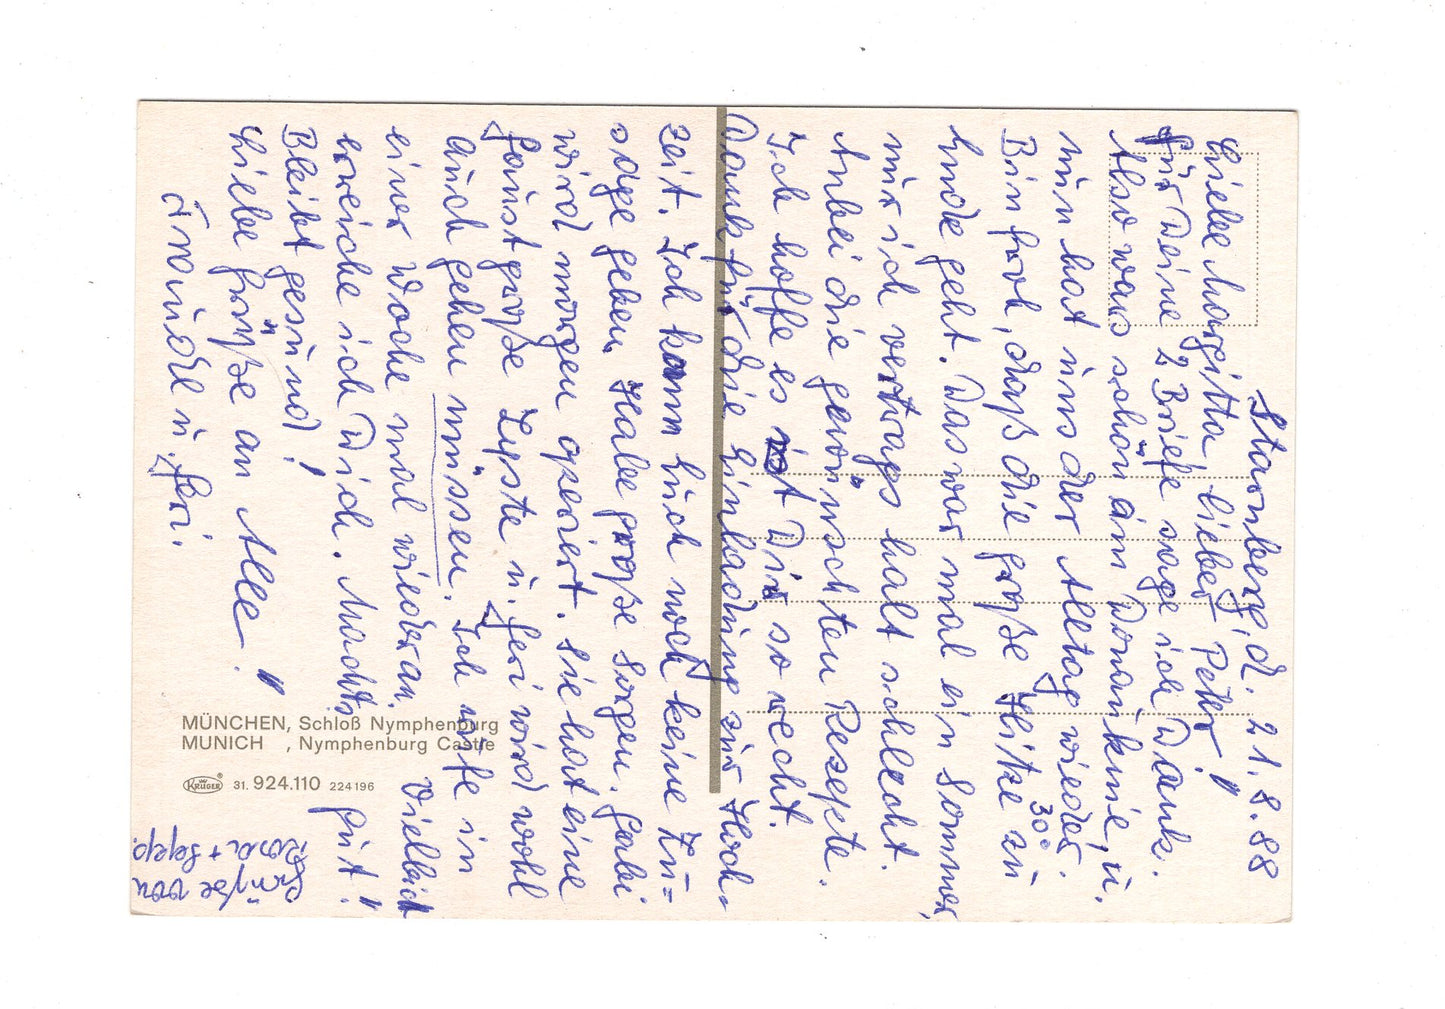 Starnberg, d. 21.8.88
Liebe Margitta - lieber Peter!
Für Deine 2 Briefe sage ich Dank.
Also war's schön am Donauknie, u.
nun hat uns der Alltag wieder.
Bin froh, daß die große Hitze 30° zu
Ende geht. Das war mal ein Sommer,
nur ich vertrags halt schlecht.
Anbei die gewünschten Rezepte.
Ich hoffe es ist Dir so recht.
Dank für die Einladung zur Hoch-
zeit. Ich kann Euch noch keine Zu-
sage geben. Habe große Sorgen. Gabi
wird morgen operiert. Sie hat eine
faustgroße Zyste u. Geri wird wohl
auch gehen müssen. Ich rufe in
einer Woche mal wieder an. Vielleicht
erreiche ich Dich. Machts gut!
Bleibt gesund!
Liebe Grüße an Alle!
Traudl u. Geri.
Grüße von
Rosa + Sepp.
MÜNCHEN, Schloß Nymphenburg
MUNICH , Nymphenburg Castle
KRÜGER 31. 924.110 224196